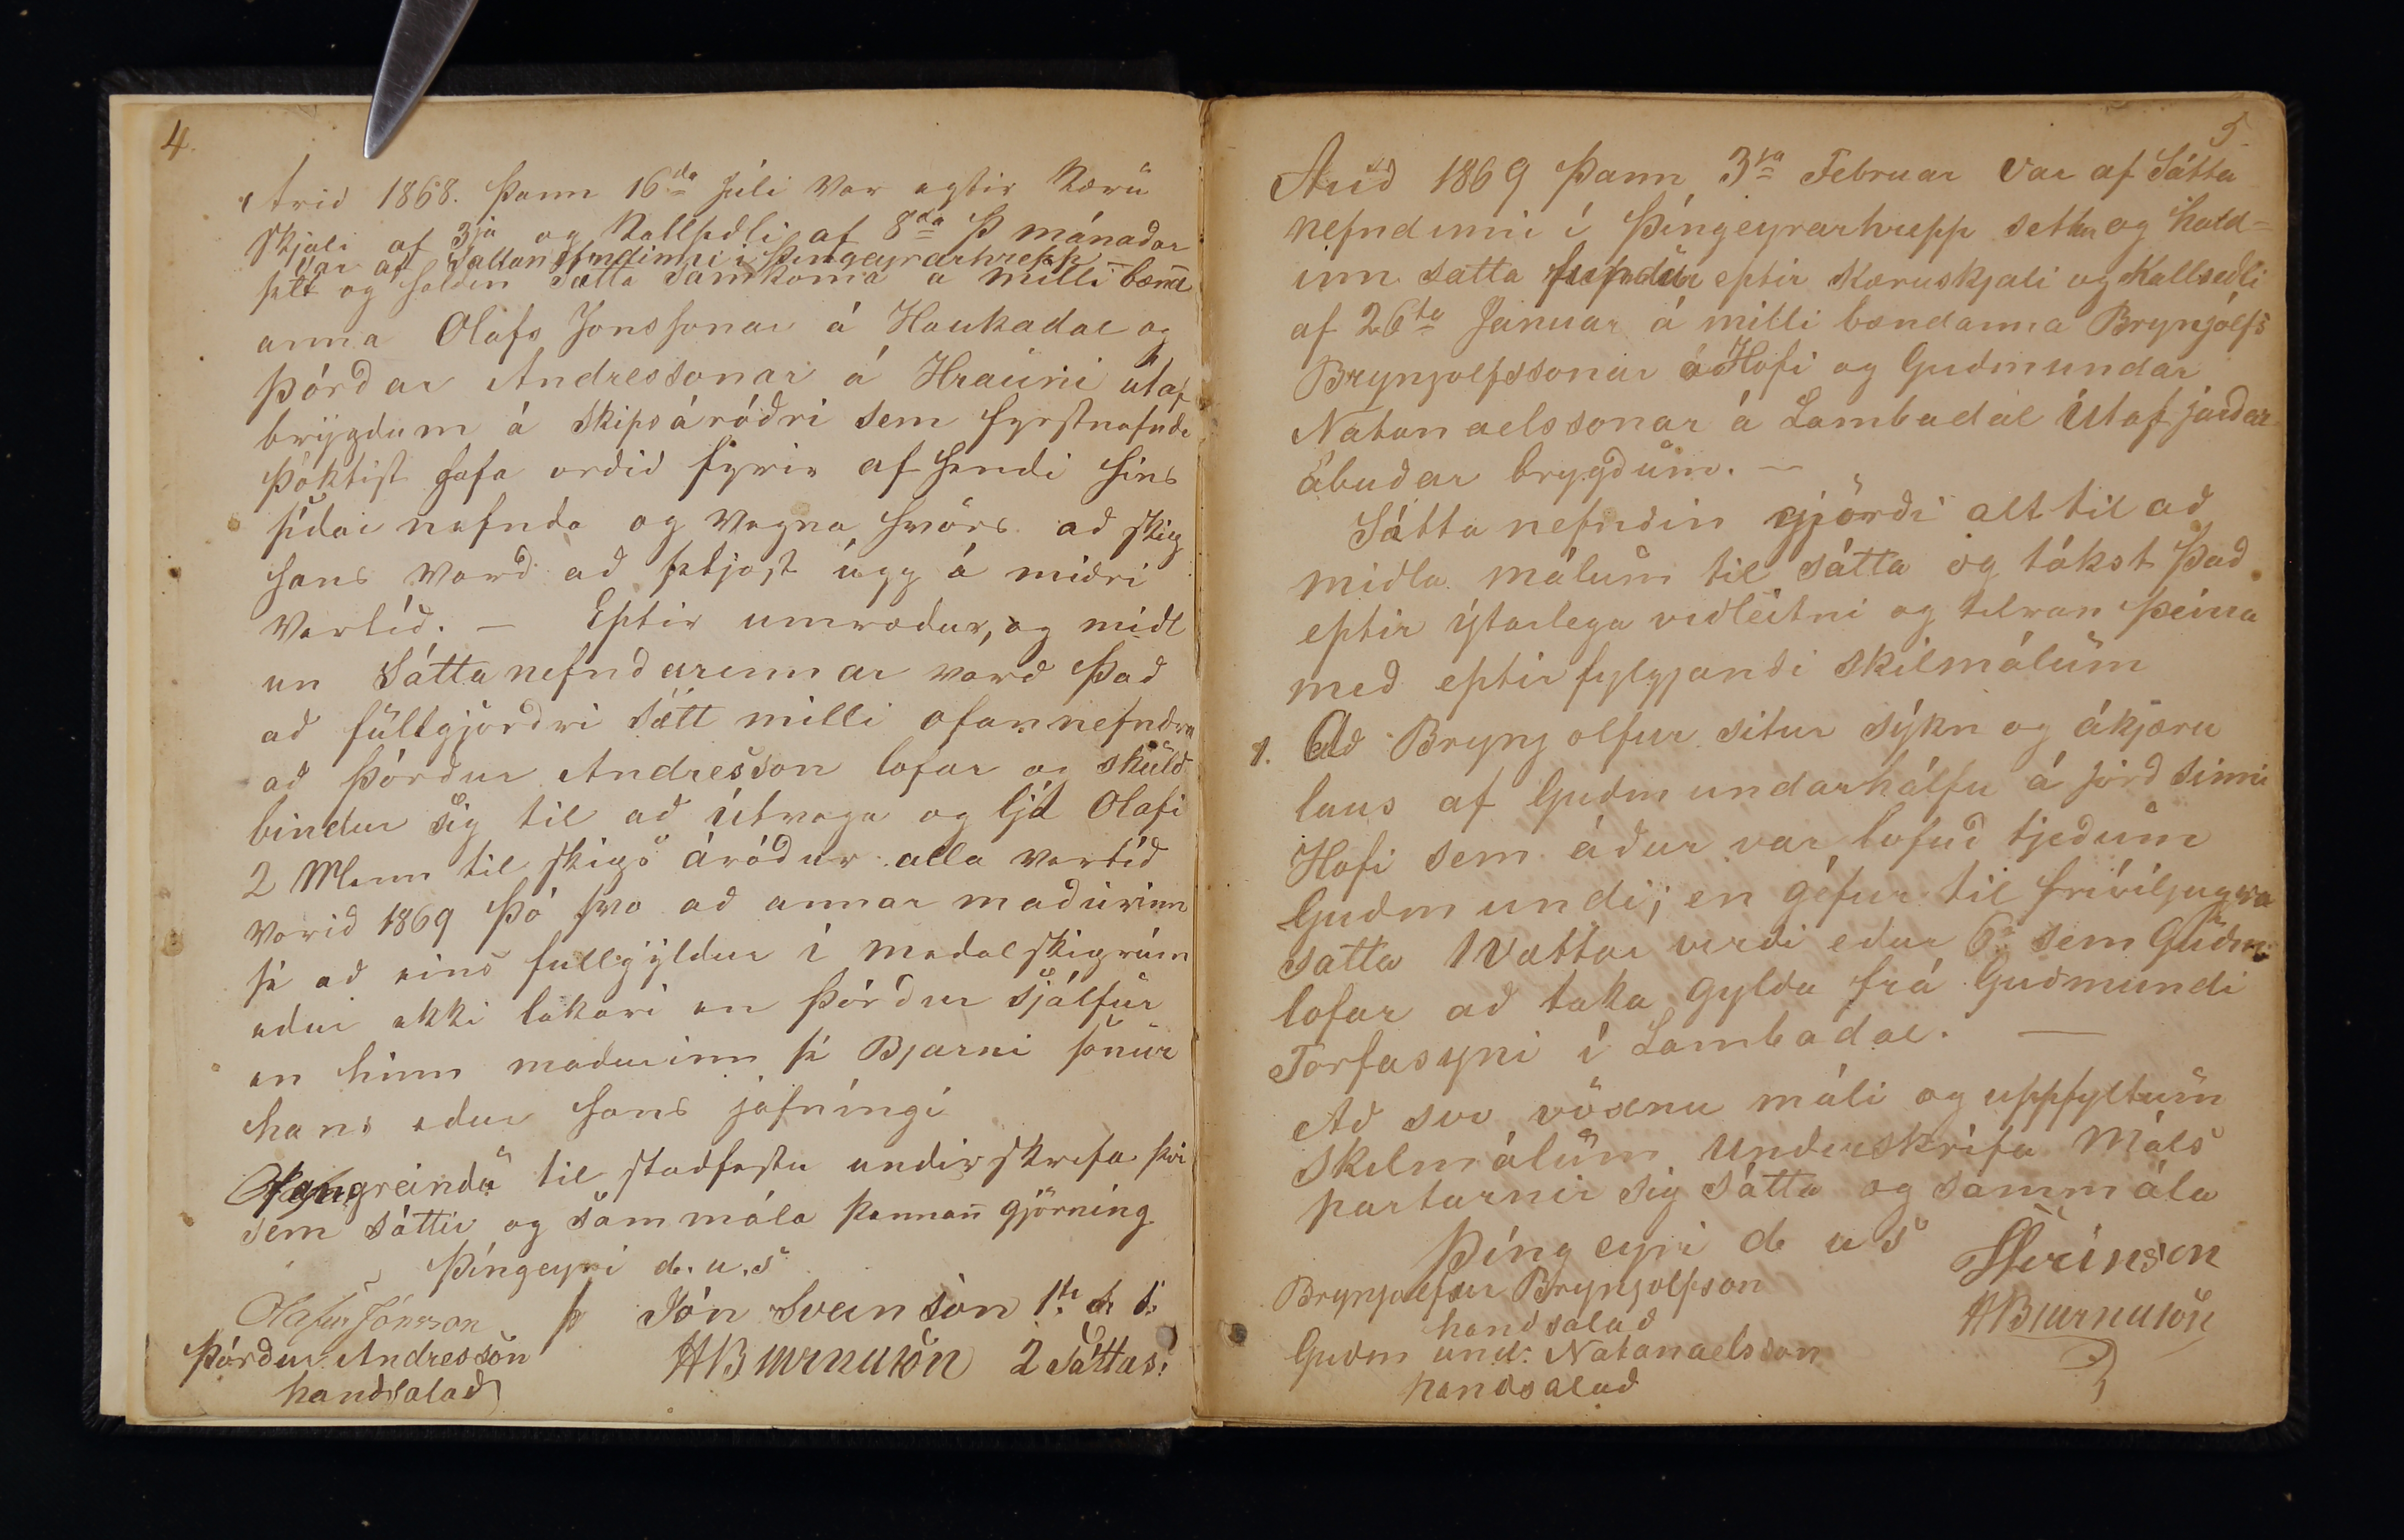 4.
Arið 1868. Þann 16da Júli var eptir Kæru
skjali af 3ja og Kallseðli af 8da Þ mánaðar
var af Sáttanefndinni i Þingeyrarhrepp
sett og haldin Sætta Samkoma á milli bænd
anna Olafs Jónssonar á Haukadal og
Þórðar Andressonar á Hrauni útaf
brygdum á skipsáróðri sem fyrstnefndi
Þóktist hafa orðið fyrir af hendi hins
síðar nefnda og vegna hvörs að skip
hans varð að setjast upp á miðri
Vertíð. — Eptir umræður, og miðl
un Sáttanefndarennar varð Það
að fullgjörðri sætt milli ofannefndra
að Þórður Andresson lofar og skuld
bindur sig til að útvega og ljá Olafi
2 Menn til skips áróður alla vertíð
Vorið 1869 Þó svo að annar maðurinn
sé að eins fullgyldur í meðal skiprúm
eður ekki lakari en Þórður sjálfur
en hinn maðurinn sé Bjarni sonur
hans eður hans jafníngi
Ofangreindu til staðfestu undirskrifa þvi
sem sáttir og sammála þennan gjörning
Þíngeyri d. u. s
Olafur Jónsson
Þórður Andresson
handsalað
Jón Sveinsson 1ti s. s.
HBjarnason 2 Sáttas:
5
Arið 1869 Þann 3ja Februar var af Sátta
nefndinni í Þíngeyrarhrepp settur og hald=
inn satta fundur eptir Kæruskjali og Kallseðli
af 26ta Januar á milli bændanna Brynjólfs
Brynjolfssonar á Hofi og Guðmundar
Natanaelssonar á Lambadal Útaf jarðar
ábuðar brygðum. —
Sátta nefndin gjörði alt til að
miðla málum til sátta og tókst Það
eptir ýtarlega viðleitni og tilraun Þeirra
með eptirfylgjandi skilmálum
1. Að Brynjolfur situr sýkn og ákjæru
laus af Guðmundarhálfu á jörð sinni
Hofi sem áður var lofuð tjeðum
Guðmundi; en géfur til fríviljugra
satta 1 Vættar virði eður 6r sem Guðmr:
lofar að taka gylda frá Guðmundi
Torfasyni í Lambadal. —
Að svo vöxnu máli og uppfyltum
skilmálum Underskrifa Máls
partarnir sig sátta og sammála
Þíng eyri d. u s
Brynjolfur Brynjolfson
handsalað
Guðm und: Natanaelsson
handsalað
JSveinsson
HBjarnason